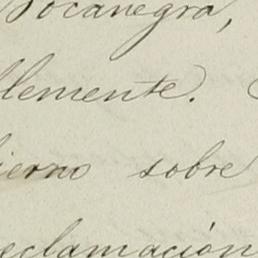 Bocanegra,
lemente.
ierno sobre
reclamación